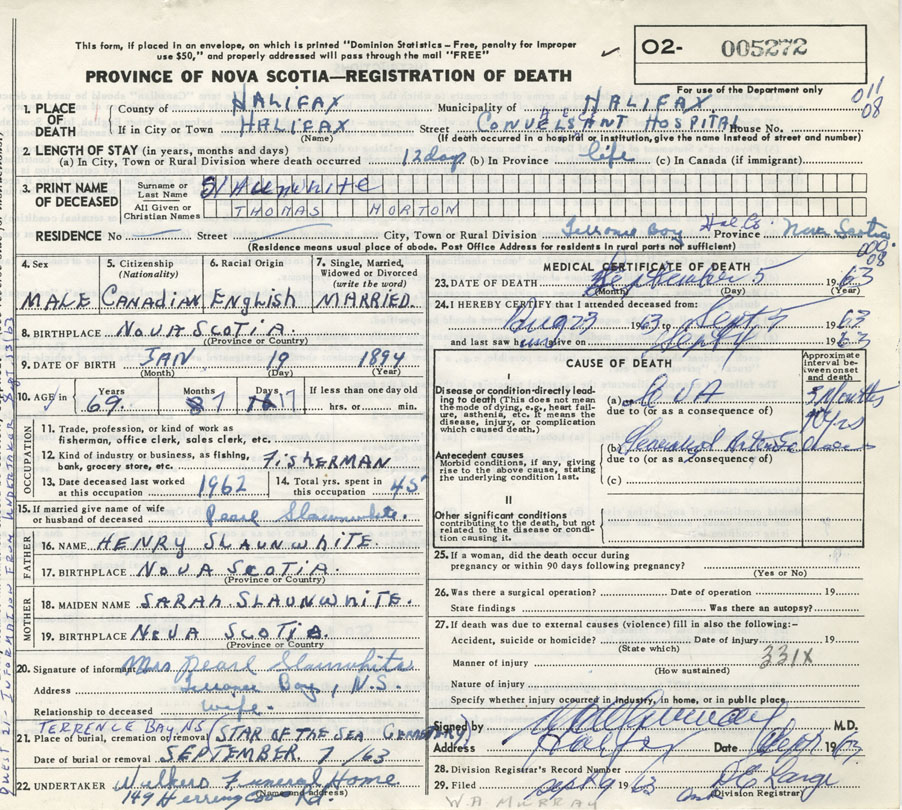 This form, if placed in an envelope, on which is printed "Dominion Statistics – Free, penalty for improper
use $50," and properly addressed will pass through the mail "FREE"
✓ 02- 005272
PROVINCE OF NOVA SCOTIA—REGISTRATION OF DEATH
For use of the Department only
011
08
1. PLACE OF DEATH
County of HALIFAX Municipality of HALIFAX
If in City or Town HALIFAX (Name) Street CONVELSANT HOSPITAL House No.
(If death occurred in a hospital or institution, give the name instead of street and number)
2. LENGTH OF STAY (in years, months and days)
(a) In City, Town or Rural Division where death occurred 12 days (b) In Province life (c) In Canada (if immigrant)
3. PRINT NAME OF DECEASED
Surname or Last Name Slaunwhite
All Given or Christian Names THOMAS HORTON
RESIDENCE No Street City, Town or Rural Division Terrence Bay Hal. Co. Province Nova Scotia
(Residence means usual place of abode. Post Office Address for residents in rural parts not sufficient)
000
08
4. Sex MALE
5. Citizenship (Nationality) Canadian
6. Racial Origin English
7. Single, Married, Widowed or Divorced (write the word) MARRIED.
8. BIRTHPLACE NOVA SCOTIA.
(Province or Country)
9. DATE OF BIRTH JAN 19 1894
(Month) (Day) (Year)
10. AGE in Years 69 Months 7 Days 17 If less than one day old hrs. or min.
OCCUPATION
11. Trade, profession, or kind of work as fisherman, office clerk, sales clerk, etc.
12. Kind of industry or business, as fishing, bank, grocery store, etc. FISHERMAN
13. Date deceased last worked at this occupation 1962
14. Total yrs. spent in this occupation 45
15. If married give name of wife or husband of deceased Pearl Slaunwhite.
FATHER
16. NAME HENRY SLAUNWHITE.
17. BIRTHPLACE NOVA SCOTIA.
(Province or Country)
MOTHER
18. MAIDEN NAME SARAH SLAUNWHITE.
19. BIRTHPLACE NOVA SCOTIA.
(Province or Country)
20. Signature of informant Mrs Pearl Slaunwhite
Address Terrence Bay, N.S.
Relationship to deceased wife.
TERRENCE BAY NS
21. Place of burial, cremation or removal STAR OF THE SEA CEMETERY
Date of burial or removal SEPTEMBER 7/63
22. UNDERTAKER Walkers Funeral Home
149 Herring Cove Rd.
(Name and address)
QUEST 21 - INFORMATION FROM UNDERTAKER SEPT 13/63
MEDICAL CERTIFICATE OF DEATH
23. DATE OF DEATH September 5 1963
(Month) (Day) (Year)
24. I HEREBY CERTIFY that I attended deceased from:
Aug 23 1963 to Sept 5 1963
and last saw him alive on Sept 4 1963
CAUSE OF DEATH
Approximate interval between onset and death
I
Disease or condition directly leading to death (This does not mean the mode of dying, e.g., heart failure, asthenia, etc. It means the disease, injury, or complication which caused death.)
(a) CVA 3 Months
due to (or as a consequence of)
10 yrs
Antecedent causes
Morbid conditions, if any, giving rise to the above cause, stating the underlying condition last.
(b) Generalized
due to (or as a consequence of)
(c)
II
Other significant conditions
contributing to the death, but not related to the disease or condition causing it.
25. If a woman, did the death occur during pregnancy or within 90 days following pregnancy?
(Yes or No)
26. Was there a surgical operation? Date of operation 19
State findings Was there an autopsy?
27. If death was due to external causes (violence) fill in also the following:-
Accident, suicide or homicide? Date of injury 19
(State which)
331X
Manner of injury
(How sustained)
Nature of injury
Specify whether injury occurred in industry, in home, or in public place
Signed by M.D.
Address Halifax Date Sept 1963
28. Division Registrar's Record Number
29. Filed Sept 9 1963
(Division Registrar)
W.A MURRAY